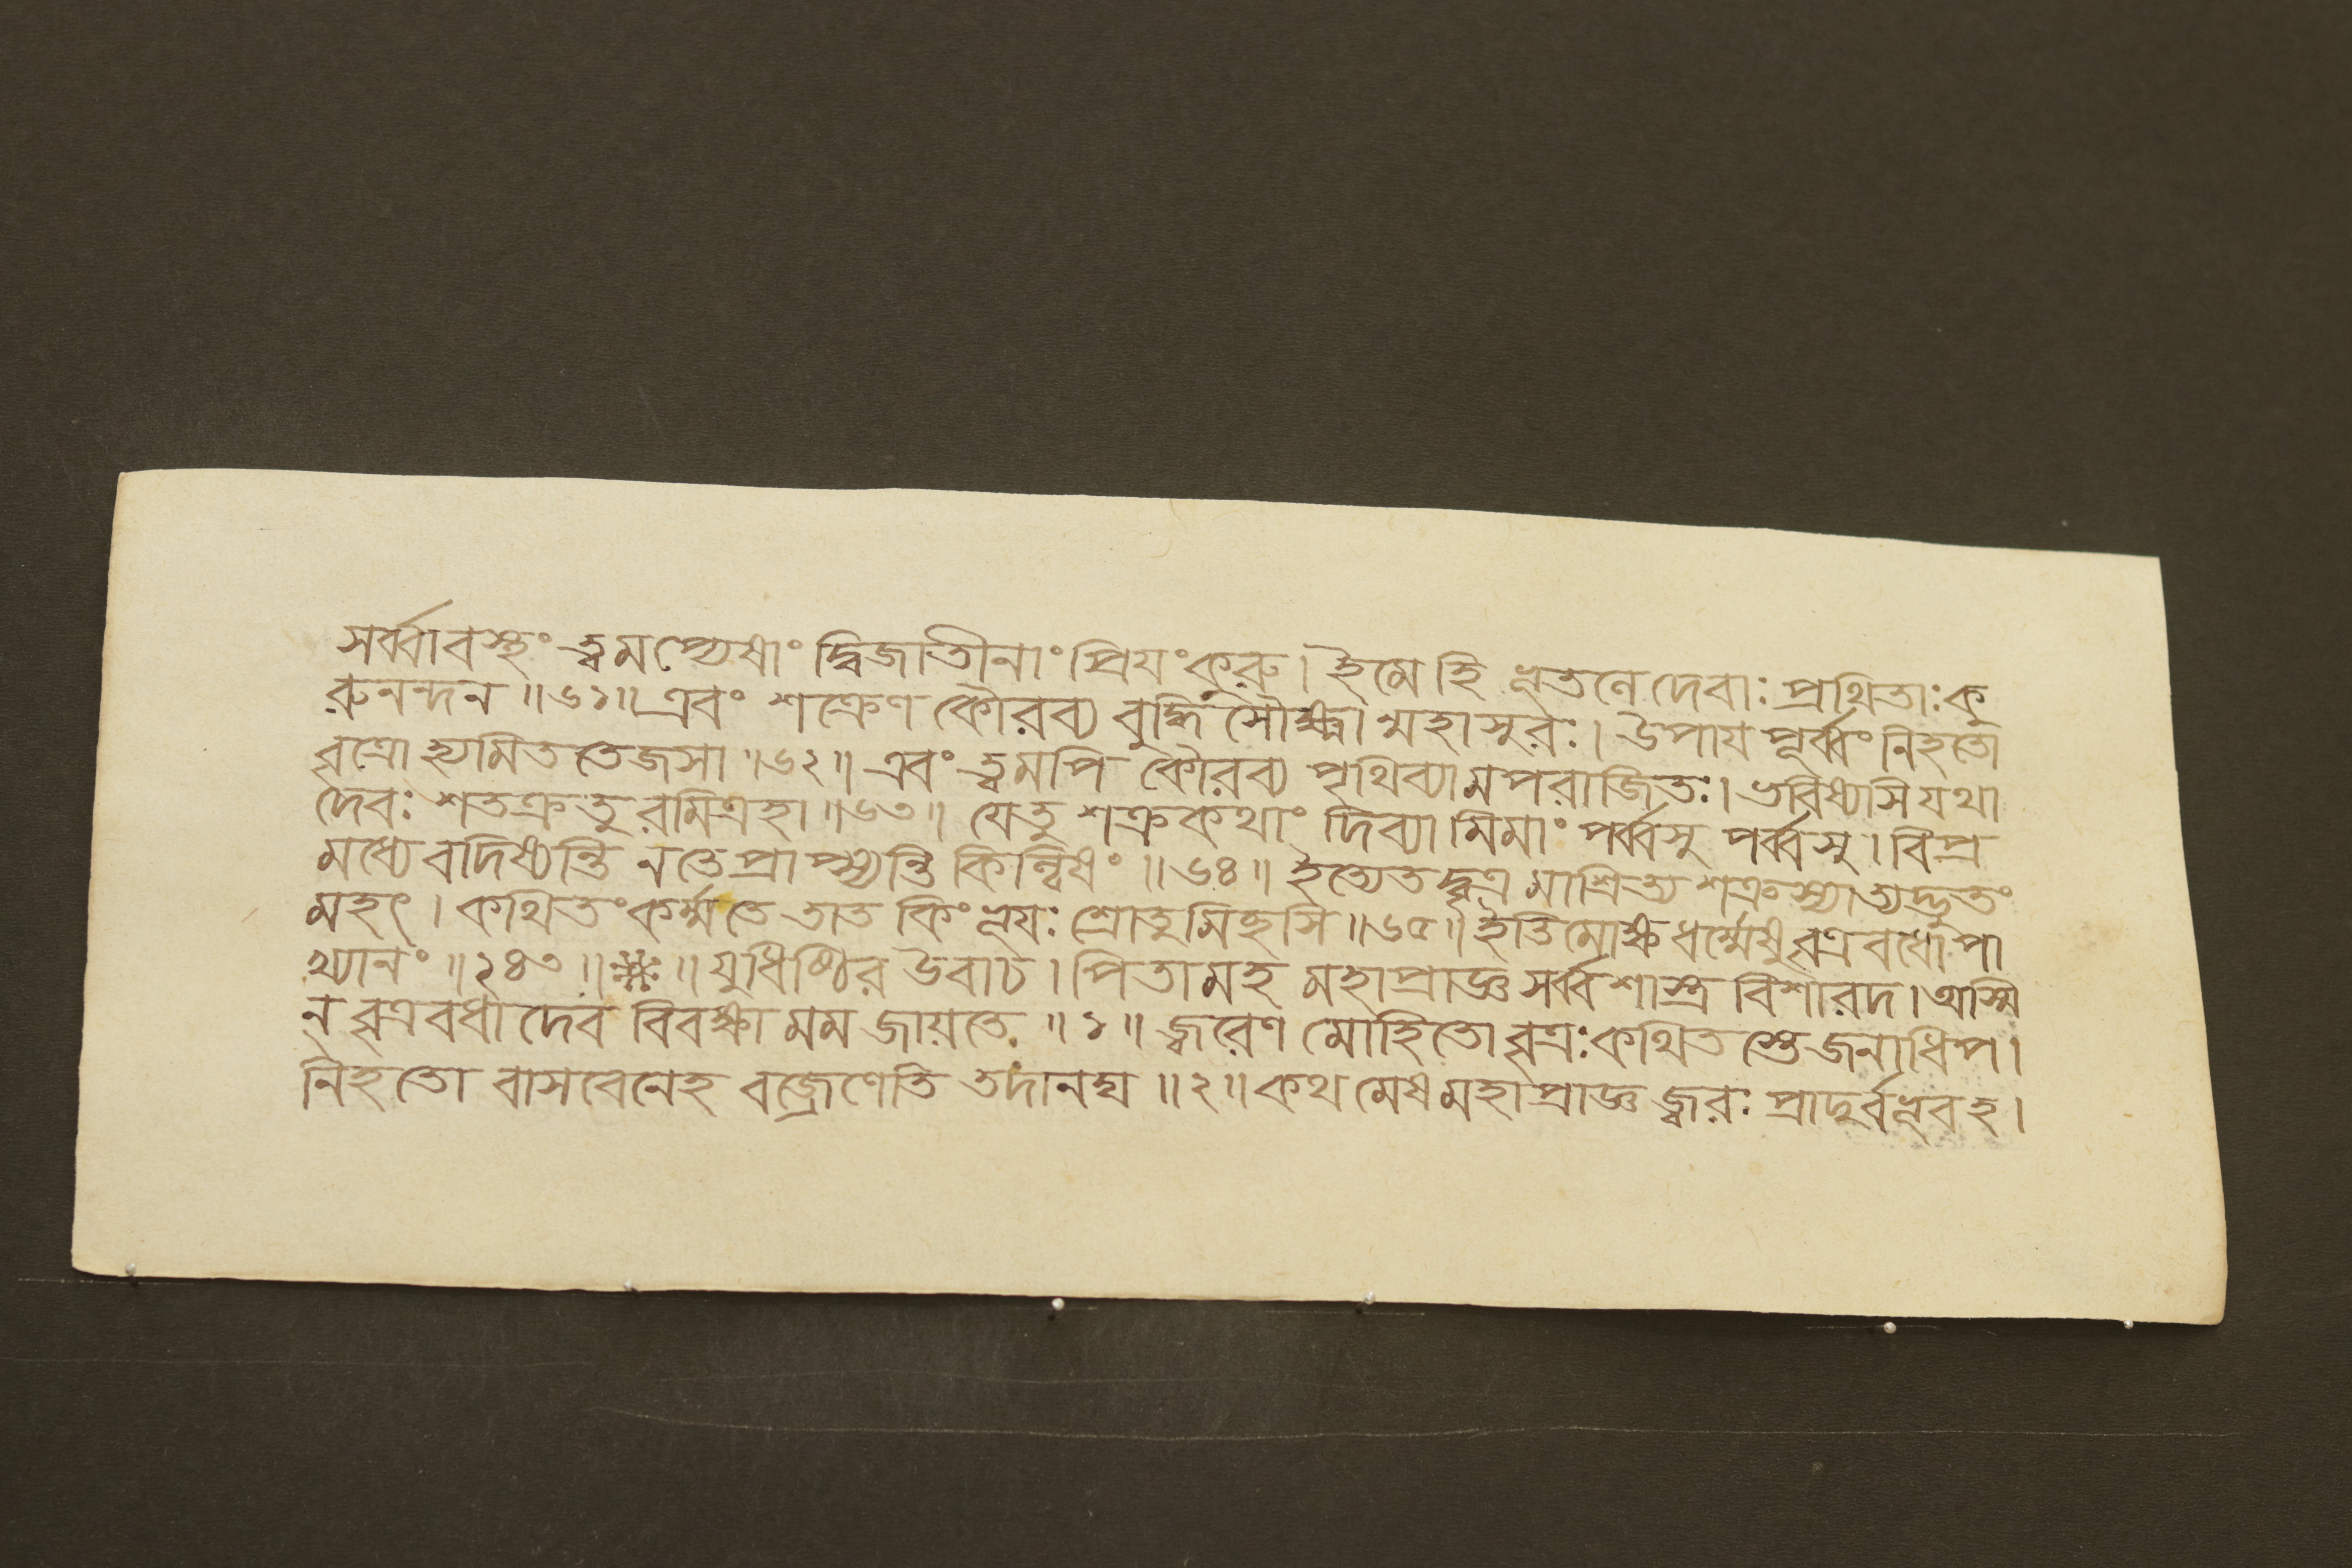 সর্ব্বাবস্থং ত্বমপ্যেষাং দ্বিজাতীনাং প্রিয়ংকুরু। ইমে হি ভূতলে দেবাঃ প্রথিতাঃ কু
রুনন্দন ॥৬১॥ এবং শক্রেণ কৌরব্য বুদ্ধি সৌক্ষ্ম্যান্মহাসুরঃ। উপায পূর্ব্বং নিহতো
বৃত্রো হ্যমিত তেজসা ॥৬২॥ এবং ত্বমপি কৌরব্য পৃথিব্যামপরাজিতঃ। ভবিষ্যসি যথা
দেবঃ শতক্রতুরমিত্রহা ॥৬৩॥ যেতু শক্রকথাং দিব্যামিমাং পর্ব্বসু পর্ব্বসু। বিপ্র
মধ্যে বদিষ্যন্তি নতে প্রাপ্স্যন্তি কিল্বিষং ॥৬৪॥ ইত্যেতদ্বৃত্র মাশ্রিত্য শক্রস্যাত্যদ্ভুতং
মহৎ। কথিতং কর্ম্ম তে তাত কিং ভূযঃ শ্রোতুমিহুসি ॥৬৫॥ ইতি মোক্ষ ধর্ম্মেষু বৃত্র বধোপা
খ্যানং ॥২৪৩॥ঃ॥ যুধিষ্ঠির উবাচ। পিতামহ মহাপ্রাজ্ঞ সর্ব্বশাস্ত্র বিশারদ। অস্মি
ন্ বৃত্রবধাদেব বিবক্ষা মম জায়তে ॥১॥ জ্বরেণ মোহিতো বৃত্রঃ কথিত স্তে জনাধিপ।
নিহতো বাসবেনেহ বজ্রেণেতি তদানঘ ॥২॥ কথ মেষ মহাপ্রাজ্ঞ জ্বরঃ প্রাদুর্বভূবহ।